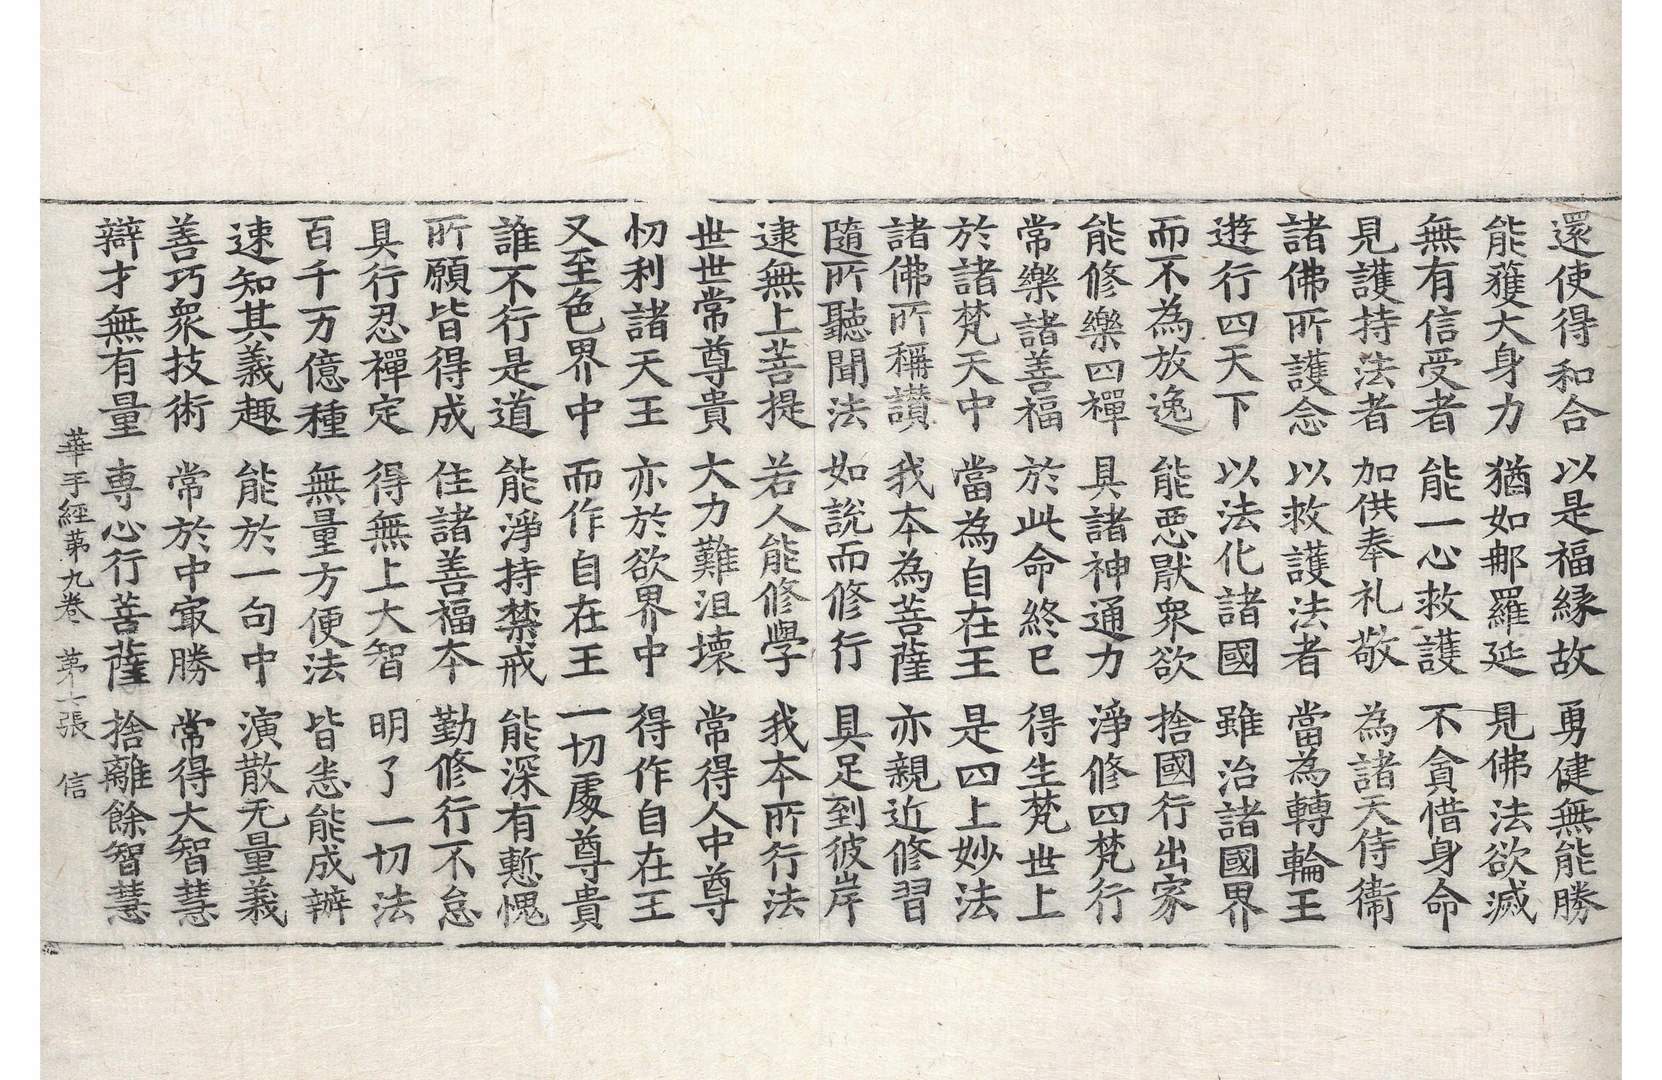 還使得和合 以是福緣故 勇健無能勝
能獲大身力 猶如那羅延 見佛法欲滅
無有信受者 能一心救護 不貪惜身命
見護持法者 加供奉礼敬 為諸天侍衛
諸佛所護念 以救護法者 當為轉輪王
遊行四天下 以法化諸國 雖治諸國界
而不為放逸 能惡猒衆欲 捨國行出家
能修樂四禪 具諸神通力 淨修四梵行
常樂諸善福 於此命終已 得生梵世上
於諸梵天中 當為自在王 是四上妙法
諸佛所稱讃 我夲為菩薩 亦親近修習
隨所聽聞法 如說而修行 具足到彼岸
逮無上菩提 若人能修學 我夲所行法
世世常尊貴 大力難沮壞 常得人中尊
忉利諸天王 亦於欲界中 得作自在王
又至色界中 而作自在王 一切處尊貴
誰不行是道 能淨持禁戒 能深有慙愧
所願皆得成 住諸善福夲 勤修行不怠
具行忍禪定 得無上大智 明了一切法
百千万億種 無量方便法 皆悉能成辦
速知其義趣 能於一句中 演散无量義
善巧衆技術 常於中㝡勝 常得大智慧
辯才無有量 専心行菩薩 捨離餘智慧
華手經苐九卷 苐七張 信